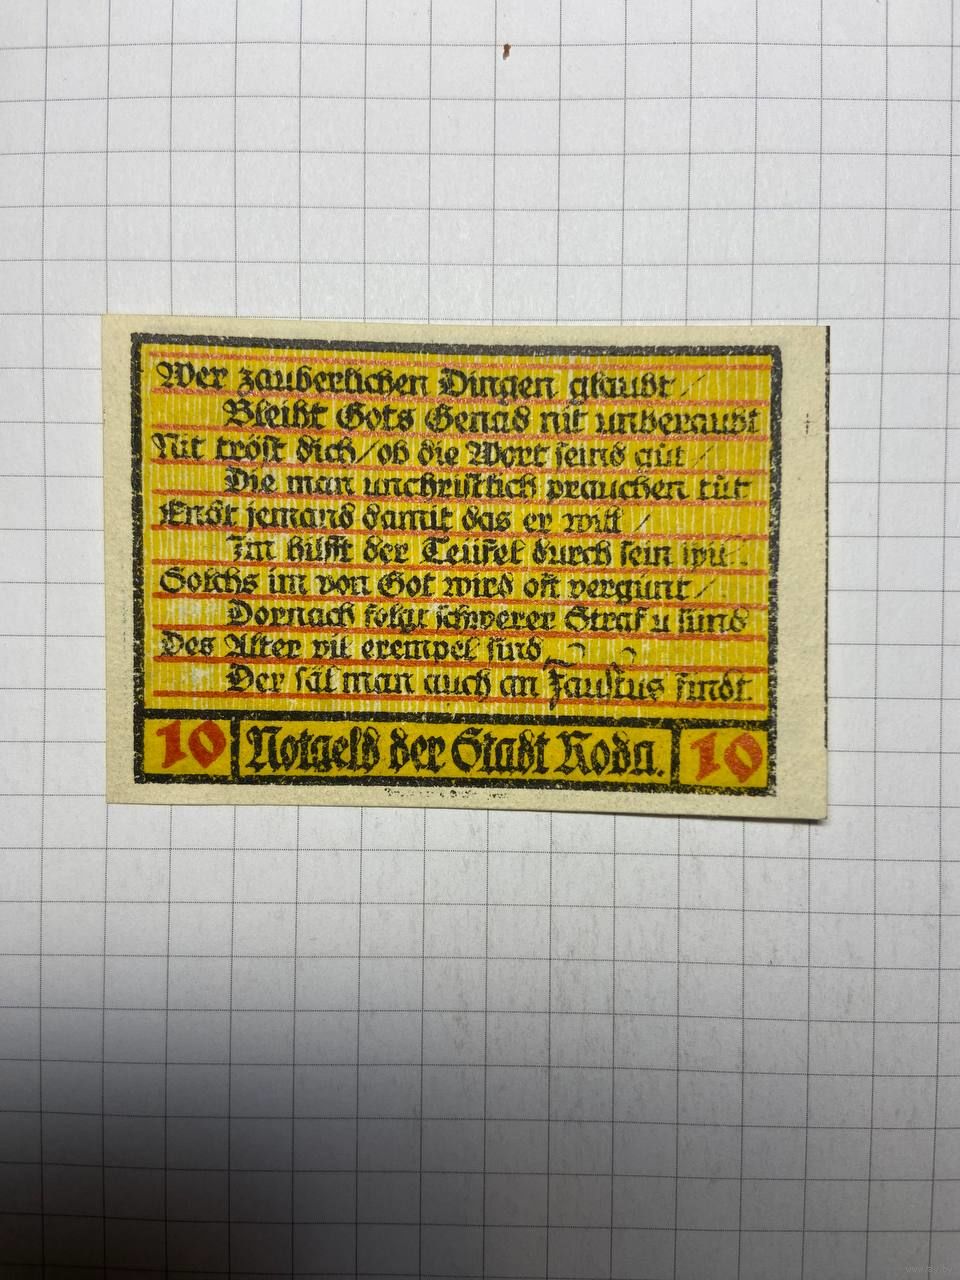 Wer zauberlichen Dingen glaubt /
Bleibt Gots Genad nit unberaubt
Nit tröst dich / ob die Wort seind güt /
Die man unchristlich prauchen tüt
Endt jemand damit das er will /
Im hilfft der Teufel durch sein
Solchs im von Got wird oft vergünt /
Dornach folgt schwerer Straf u sünd
Des Alter vil exempel sind
Der säl man auch an Faustus findt.
10 Notgeld der Stadt Roda. 10